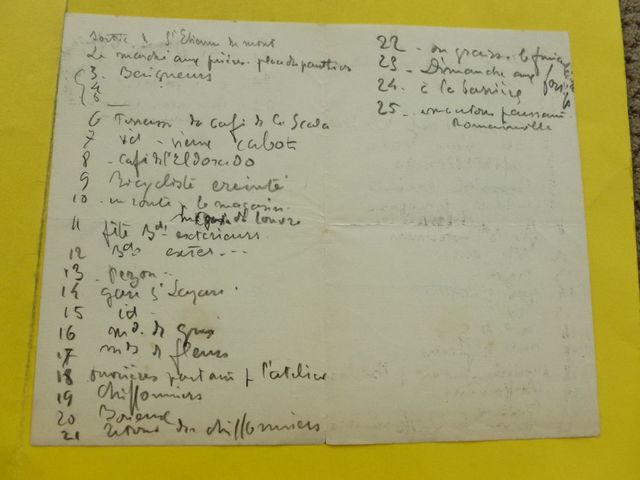 Sortie de St Etienne du mont
Le marché aux
3. Baigneurs
4
5 —
6 Terrasse du café de la Scala
7 id - vieux cabot
8 - café de l'Eldorado
9 Bicycliste éreinté
10 - en route p. le magasin
magasin du Louvre
11 fête Bds extérieurs
12 Bds exter...
13
14 gare St Lazare.
15 id -
16 md. de
17 mds de fleurs
18 ouvrières partant p l'atelier
19 Chiffonniers
20
21 retour des chiffonniers
22 -
23 - Dimanche aux
24 - à la barrière
25 -
Romainville